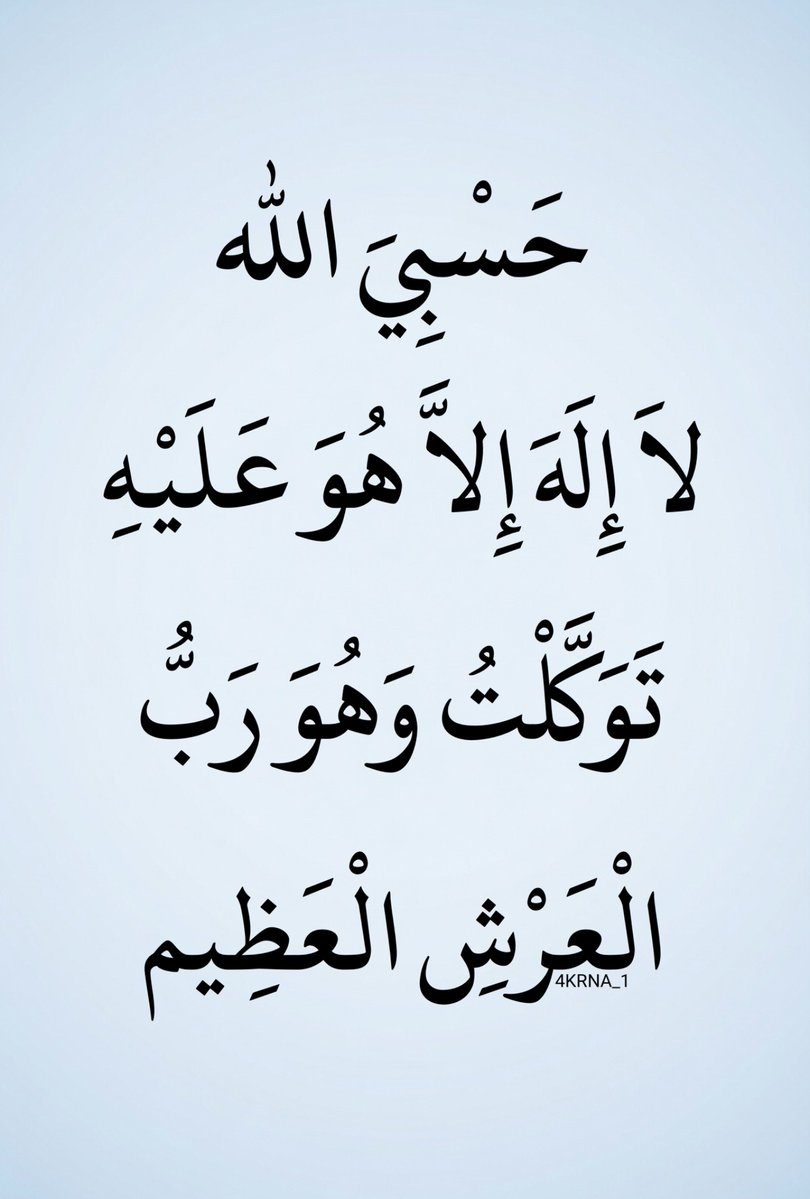 حَسْبِيَ الله
لاَ إِلَهَ إِلاَّ هُوَ عَلَيْهِ
تَوَكَّلْتُ وَهُوَ رَبُّ
الْعَرْشِ الْعَظِيم
4KRNA_1